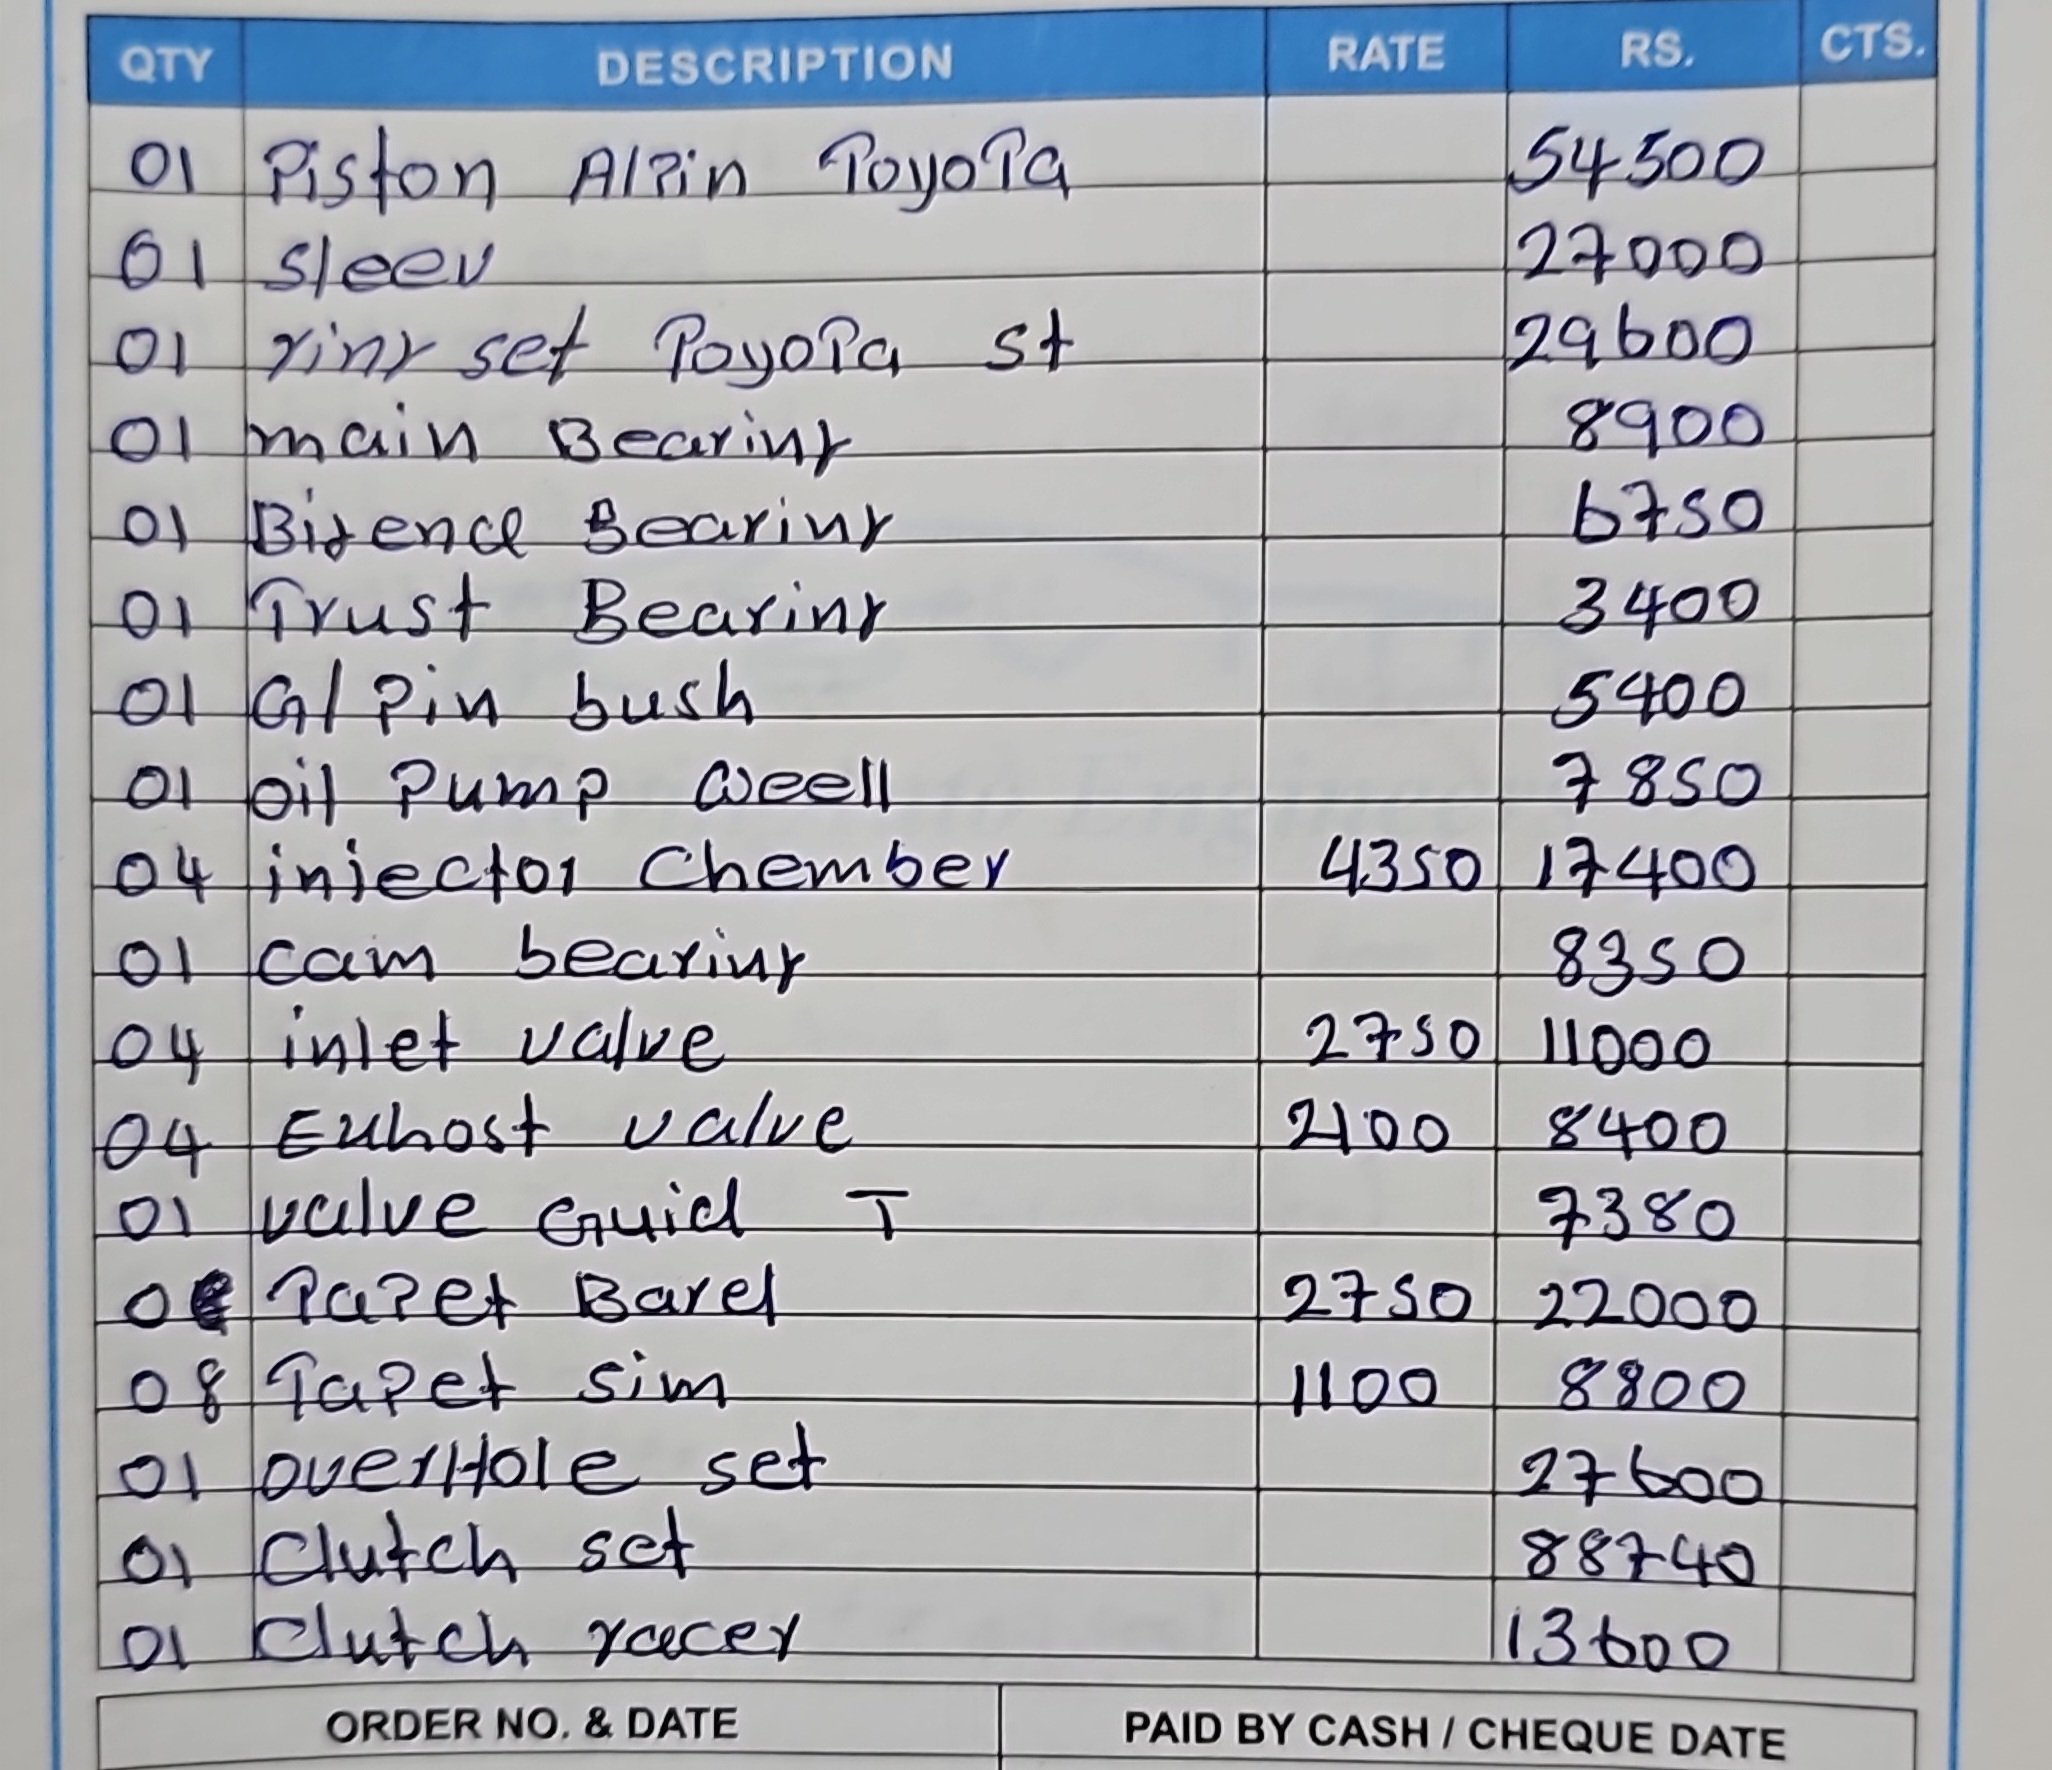 QTY DESCRIPTION RATE RS. CTS.
01 Piston A/Pin Toyota 54500
01 sleev 27000
01 ring set Toyota st 29600
01 main Bearing 8900
01 Bigend Bearing 6750
01 Trust Bearing 3400
01 G/Pin bush 5400
01 oil Pump weell 7850
04 injector Chember 4350 17400
01 cam bearing 8350
04 inlet valve 2750 11000
04 Exhost valve 2100 8400
01 valve Guid T 7380
08 Tapet Barel 2750 22000
08 Tapet sim 1100 8800
01 overHole set 27600
01 Clutch set 88740
01 Clutch racer 13600
ORDER NO. & DATE PAID BY CASH / CHEQUE DATE